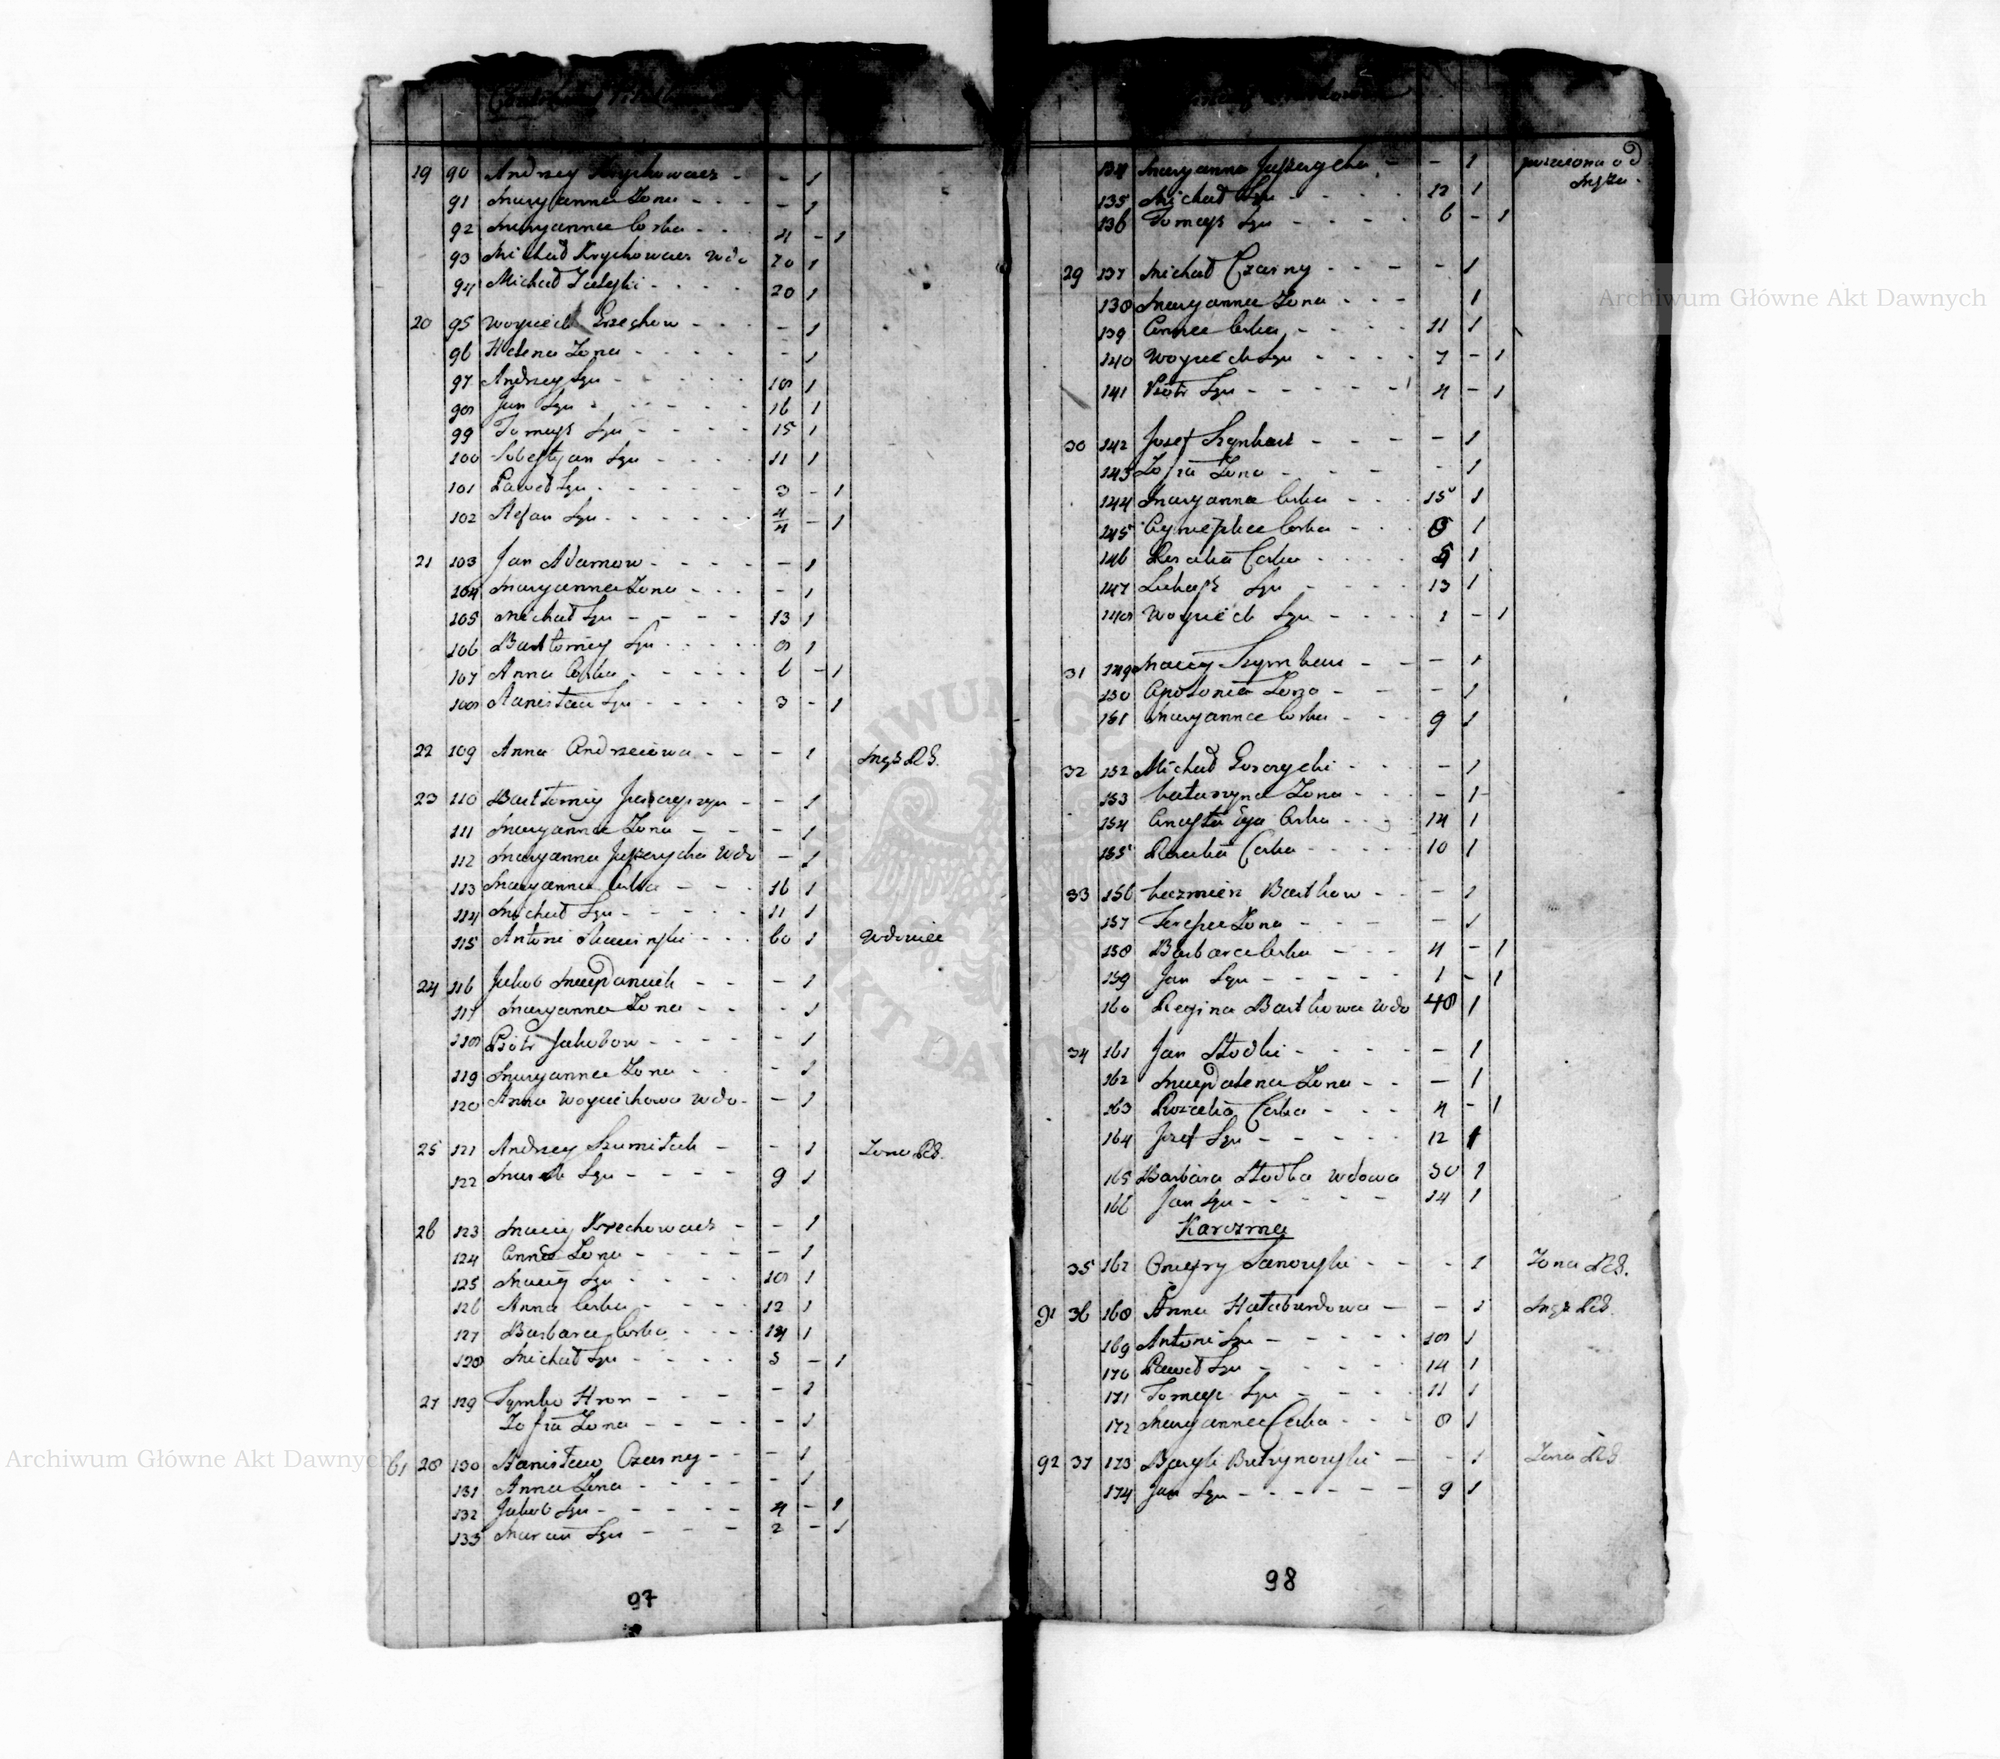 19 90 Andrzey Krychowacz - - 1
91 Maryanna Zona - - - - 1
92 Maryanna Corka - - 4 - 1
93 Michał Krychowacz Wdo 70 1
94 Michał - - - - 20 1
20 95 Woyciech Grzechow - - - - 1
96 Helena Zona - - - - - 1
97 Andrzey Syn - - - - 18 1
98 Jan Syn - - - - 16 1
99 Tomasz Syn - - - - 15 1
100 Sebestyan Syn - - - - 11 1
101 Paweł Syn - - - - - 3 - 1
102 Stefan Syn - - - - - 4/4 - 1
21 103 Jan Adamow - - - - - 1
104 Maryanna Zona - - - - 1
105 Michał Syn - - - - 13 1
106 Bartłomiey Syn - - - - 8 1
107 Anna Corka - - - - - 6 - 1
108 Stanisław Syn - - - - 3 - 1
22 109 Anna Andrzeiowa - - - 1 Mąż R G.
23 110 Bartłomiy - - 1
111 Maryanna Zona - - - 1
112 Maryanna Juszczycha Wdo - 1
113 Maryanna Corka - - - 16 1
114 Michał Syn - - - - - 11 1
115 Antoni - - - 60 1 Wdowiec
24 116 Jakob - - - 1
117 Maryanna Zona - - - 1
118 Piotr Jakobow - - - - - 1
119 Maryanna Zona - - - 1
120 Anna Woyciechowa Wdo - - 1
25 121 Andrzey Szumiłak - - 1 Zona R G.
122 Syn - - - - 9 1
26 123 Maciy Krechowacz - - 1
124 Anna Zona - - - - - 1
125 Maciy Syn - - - - 18 1
126 Anna Corka - - - - 12 1
127 Barbara Corka - - - 14 1
128 Michał Syn - - - - 3 - 1
27 129 Tymko Hron - - - - 1
Zofia Zona - - - - - 1
61 28 130 Stanisław Czarny - - - 1
131 Anna Zona - - - - - 1
132 Jakob Syn - - - - - 4 - 1
133 Marcin Syn - - - - 2 - 1
97
134 Maryanna Juszczycha - - 1 od
Męża.
135 Michał Syn - - - - 12 1
136 Tomasz Syn - - - - - 6 - 1
29 137 Michał Czarny - - - - 1
138 Maryanna Zona - - - 1
139 Anna Corka - - - - 11 1
140 Woyciech Syn - - - - 7 - 1
141 Piotr Syn - - - - - 4 - 1
30 142 Jozef - - - - 1
143 Zofia Zona - - - 1
144 Maryanna Corka - - - 15 1
145 Agnieszka Corka - - - 8 1
146 Rozalia Corka - - - - 5 1
147 Łukasz Syn - - - - 13 1
148 Woyciech Syn - - - - 1 - 1
31 149 Maciy - - - 1
150 Apolonia Zona - - - 1
151 Maryanna Corka - - - 9 1
32 152 Michał Gorczycki - - - 1
153 Katarzyna Zona - - - 1
154 Anastazya Corka - - - 14 1
155 Rozalia Corka - - - - 10 1
33 156 Kazmierz Bartkow - - - 1
157 Teressa Zona - - - - 1
158 Barbara Corka - - - 4 - 1
159 Jan Syn - - - - - 1 - 1
160 Regina Bartkowa Wdo 48 1
34 161 Jan Słodki - - - - - 1
162 Magdalena Zona - - - 1
163 Rozalia Corka - - - 4 - 1
164 Jozef Syn - - - - - 12 1
165 Barbara Słodka Wdowa 50 1
166 Jan Syn - - - - - 14 1
Karczma
35 167 Onufry - - - 1 Zona R G.
91 36 168 Anna Hałaburdowa - - 1 Mąż R G.
169 Antoni Syn - - - - - 18 1
170 Paweł Syn - - - - - 14 1
171 Tomasz Syn - - - - 11 1
172 Maryanna Corka - - - 8 1
92 37 173 - - 1 Zona R G.
174 Jan Syn - - - - - - 9 1
98
Archiwum Główne Akt Dawnych
Archiwum Główne Akt Dawnych